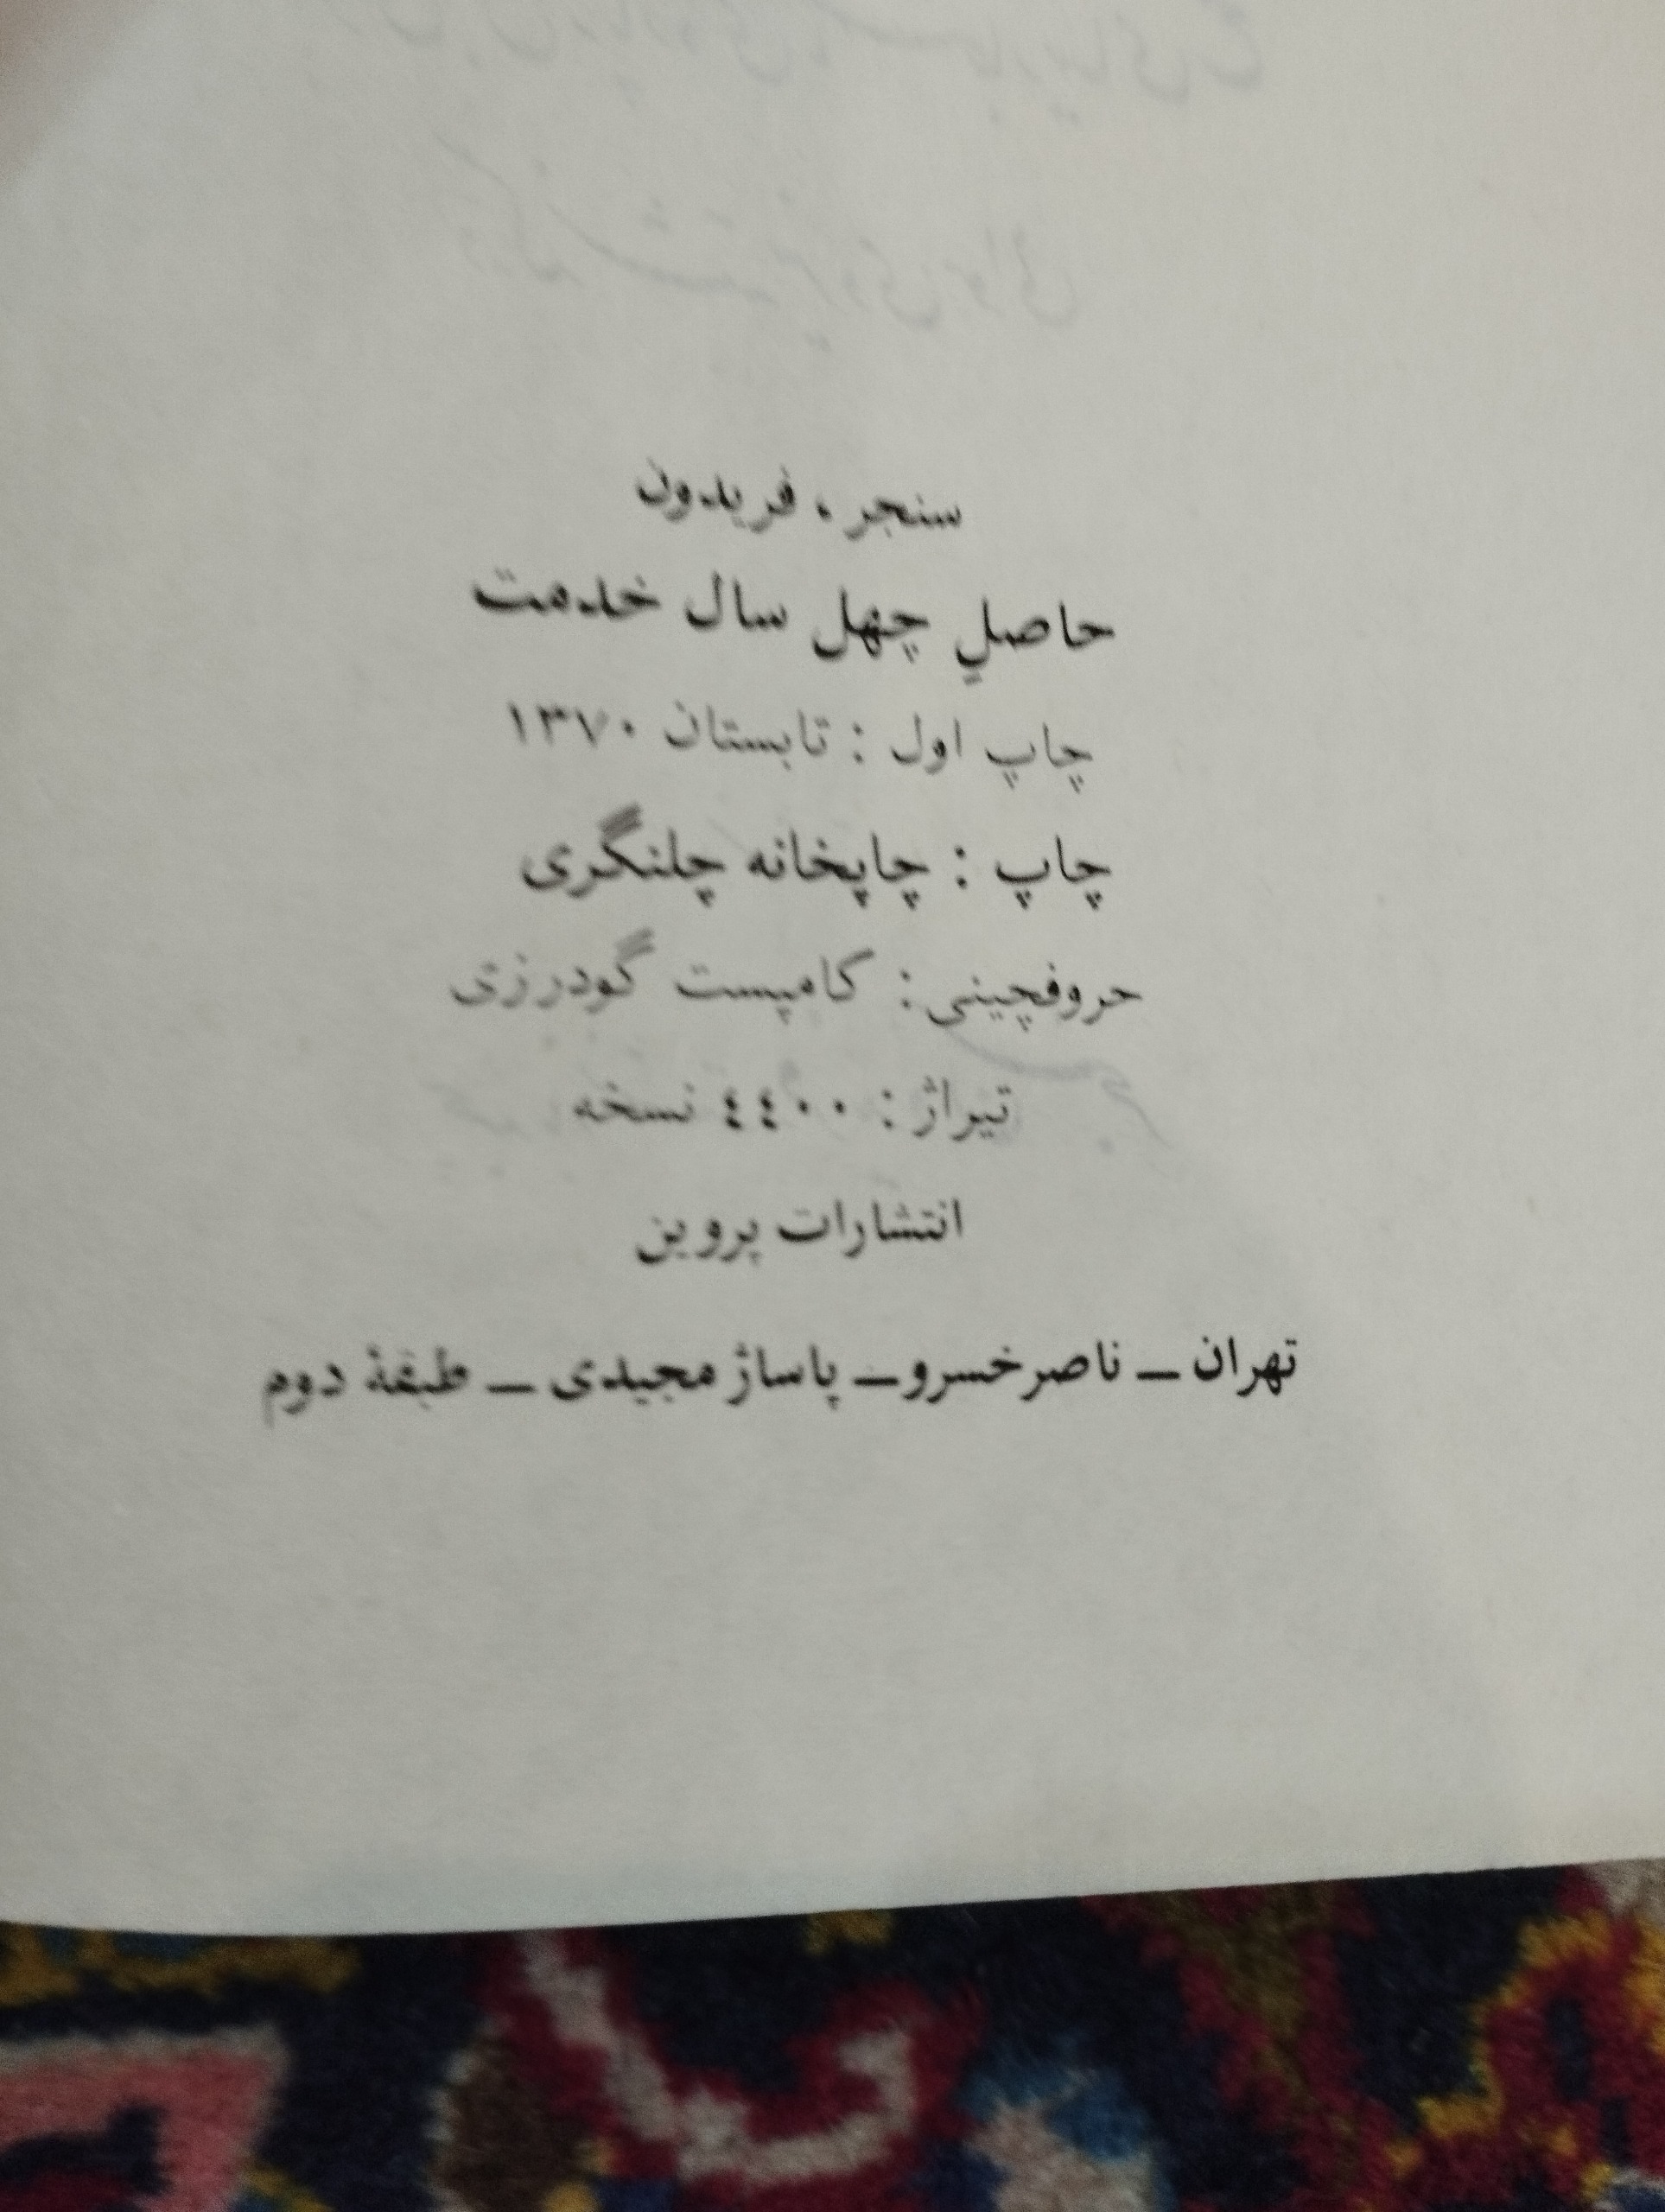 سنجر، فریدون
حاصلِ چهل سال خدمت
چاپ اول : تابستان ۱۳۷۰
چاپ : چاپخانه چلنگری
حروفچینی: کامپست گودرزی
تیراژ : ٤٤٠٠ نسخه
انتشارات پروین
تهران ــ ناصرخسرو ــ پاساژ مجیدی ــ طبقهٔ دوم